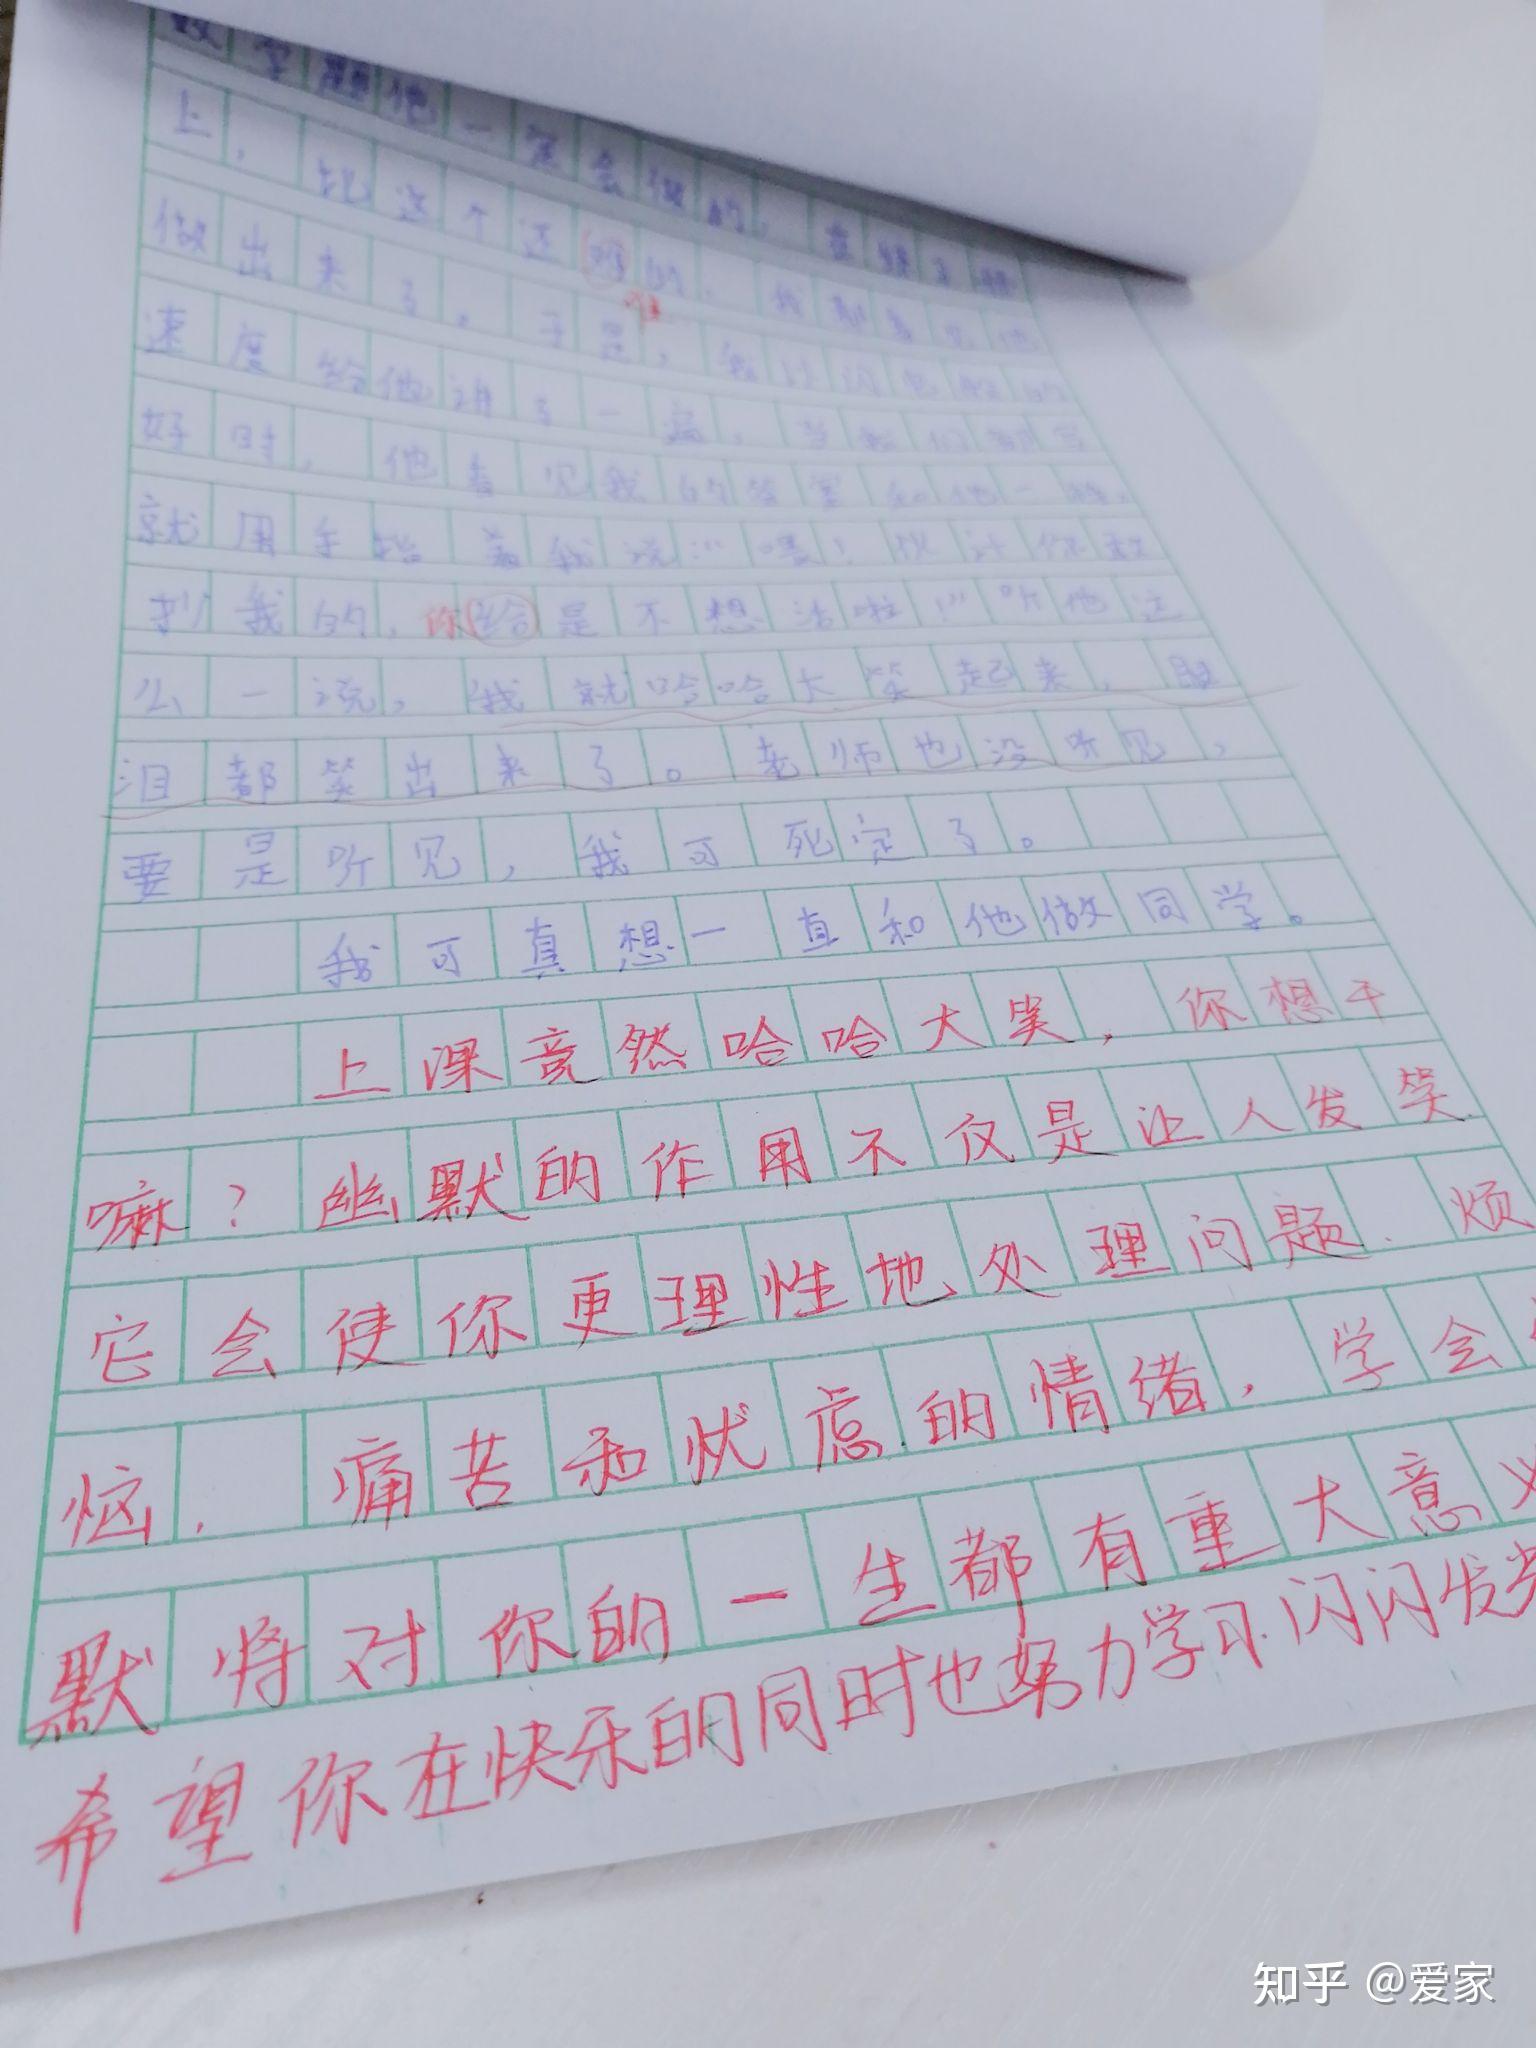 数学题他一定会做的，
上，比这个还难的，我都看见他
做出来了。于是，我以闪电般的
速度给他讲了一遍，当我们都写
好时，他看见我的答案和他一样，
就用手指着我说：“喂！伙计你敢
抄我的，你给是不想活啦！”听他这
么一说，我就哈哈大笑起来，眼
泪都笑出来了。老师也没听见，
要是听见，我可死定了。
我可真想一直和他做同学。
上课竟然哈哈大笑，你想干
嘛？幽默的作用不仅是让人发笑
它会使你更理性地处理问题、烦
恼、痛苦和忧虑的情绪，学会
默将对你的一生都有重大意义
希望你在快乐的同时也努力学习、闪闪发光
知乎 @爱家